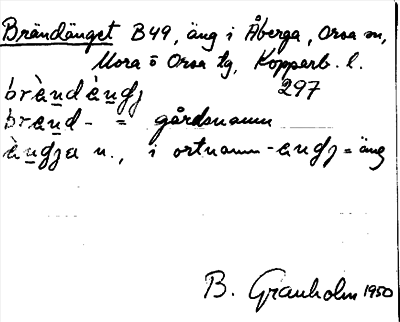 Brändänget B49, äng i Åberga, Orsa sn,
Mora o Orsa tg, Kopparb. l.
brä̀ndä̀ngj 297
bränd- = gårdsnamn
ä̀ngja n., i ortnamn -ängj = äng
B. Granholm 1950